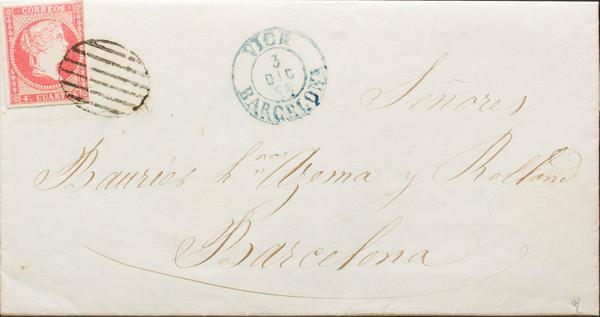 CORREOS
4 CUARTOS
VICH
3
DIC
BARCELONA
Señores
Bauriér h.nos Azema y Rolland
Barcelona